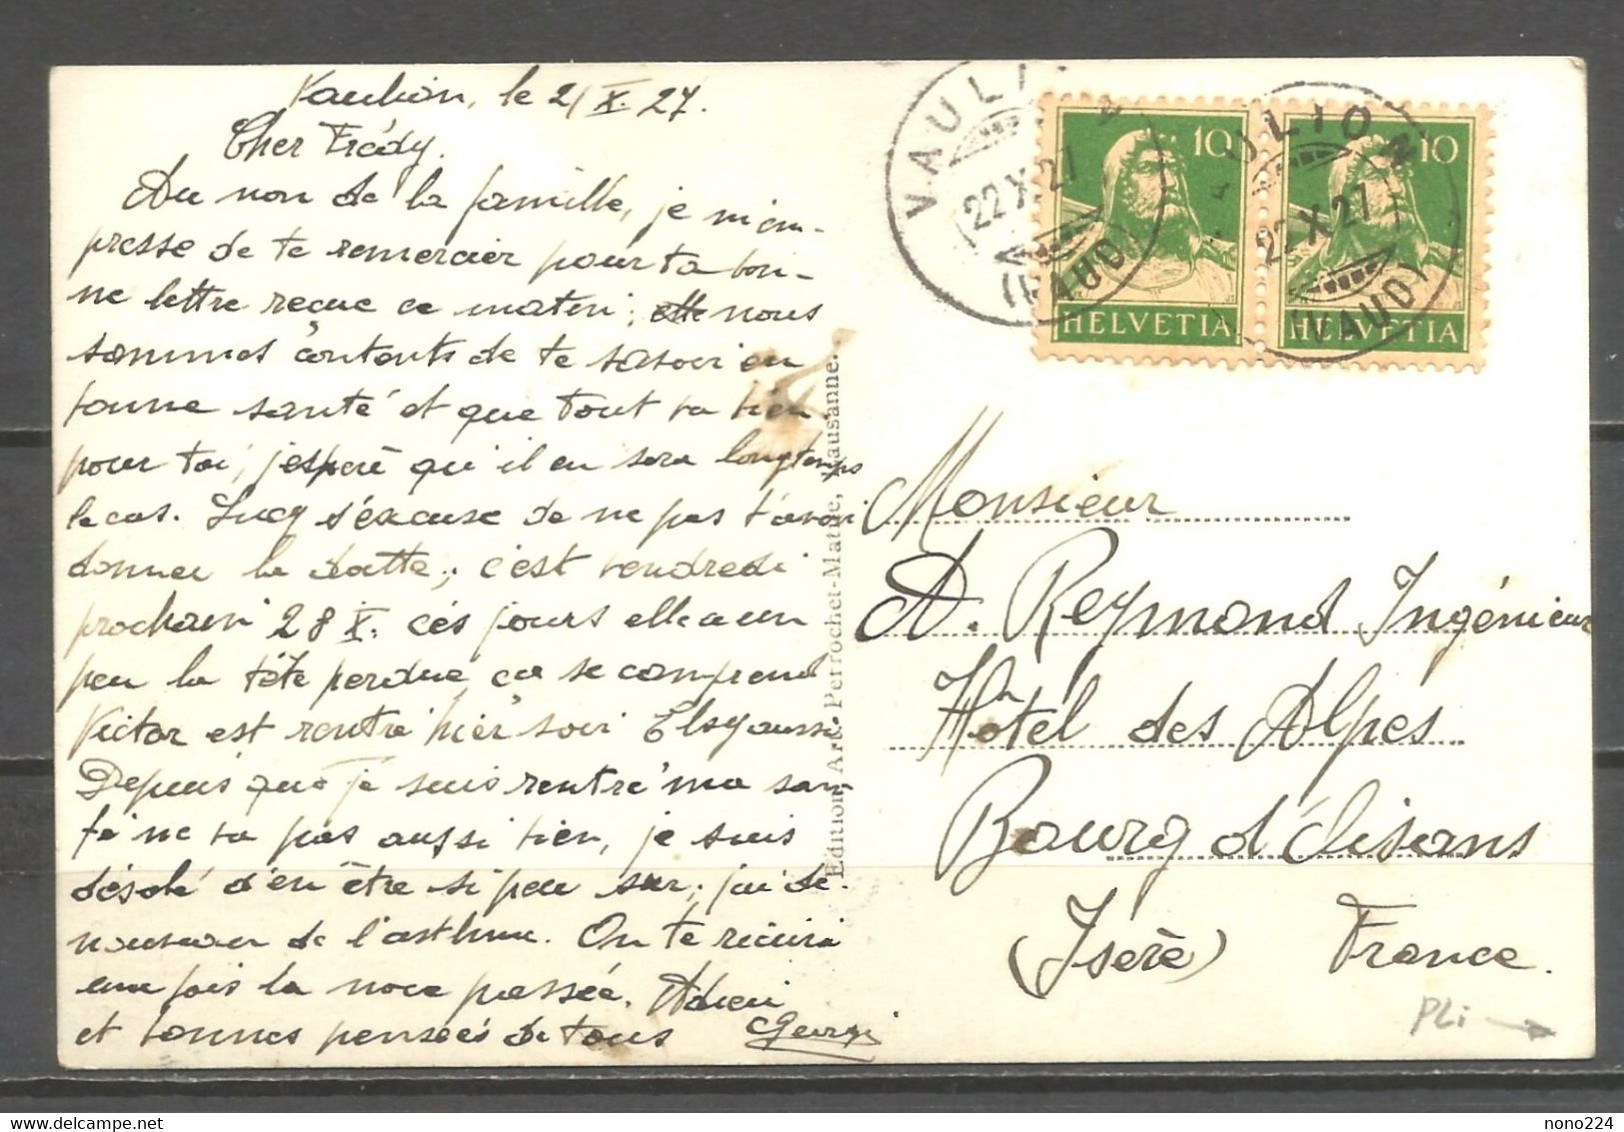 Vaulion, le 21 X. 27.
Cher Frédy.
Au nom de la famille, je m'em-
presse de te remercier pour ta bon-
ne lettre reçue ce matin; nous
sommes contents de te savoir en
bonne santé et que tout va bien
pour toi, j'espère qu'il en sera longtemps
le cas. Lucy s'excuse de ne pas t'avoir
donner la datte; c'est vendredi
prochain 28 X. ces jours elle a un
peu la tête perdue, ça se comprend
Victor est rentré hier soir Elsy aussi.
Depuis que je suis rentré ma san-
té ne va pas aussi bien, je suis
désolé d'en être si peu sur; j'ai de
nouveau de l'asthme. On te récrira
une fois la noce passée. Adieu
et bonnes pensées de tous
Georgi
Edition Art. Perrochet-Matile, Lausanne.
VAULION
22 X 27
(VAUD)
10
HELVETIA
VAULION
22 X 27
(VAUD)
10
HELVETIA
Monsieur
A. Reymond Ingénieur
Hôtel des Alpes
Bourg d'Oisans
(Isère) France.
PLi
nono224